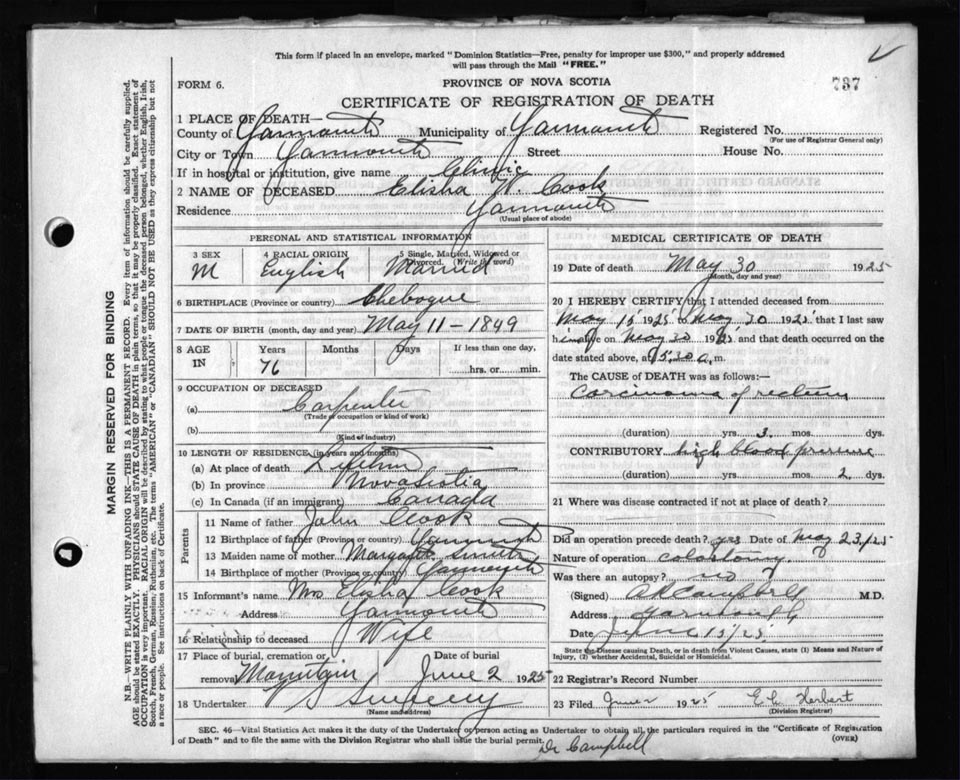 This form if placed in an envelope, marked "Dominion Statistics—Free, penalty for improper use $300," and properly addressed
will pass through the Mail "FREE."
FORM 6.
PROVINCE OF NOVA SCOTIA
737
CERTIFICATE OF REGISTRATION OF DEATH
1 PLACE OF DEATH—
County of Yarmouth Municipality of Yarmouth Registered No.
(For use of Registrar General only)
City or Town Yarmouth Street House No.
If in hospital or institution, give name
2 NAME OF DECEASED Elisha W. Cook
Residence Yarmouth
(Usual place of abode)
PERSONAL AND STATISTICAL INFORMATION
3 SEX M
4 RACIAL ORIGIN English
5 Single, Married, Widowed or Divorced. (Write the word) Married
6 BIRTHPLACE (Province or country) Chebogue
7 DATE OF BIRTH (month, day and year) May 11 - 1849
8 AGE IN Years Months Days If less than one day,
76 hrs. or min.
9 OCCUPATION OF DECEASED
(a) Carpenter
(Trade, occupation or kind of work)
(b)
(Kind of industry)
10 LENGTH OF RESIDENCE (in years and months)
(a) At place of death Lifetime
(b) In province Nova Scotia
(c) In Canada (if an immigrant) Canada
Parents
11 Name of father John Cook
12 Birthplace of father (Province or country) Yarmouth
13 Maiden name of mother Margaret Smith
14 Birthplace of mother (Province or country) Yarmouth
15 Informant's name Mrs Elisha Cook
Address Yarmouth
16 Relationship to deceased Wife
17 Place of burial, cremation or removal Mountain
Date of burial June 2 1925
18 Undertaker V S Sweeny
(Name and address)
MEDICAL CERTIFICATE OF DEATH
19 Date of death May 30 1925
(Month, day and year)
20 I HEREBY CERTIFY that I attended deceased from
May 15 1925 to May 30 1925 that I last saw
him alive on May 30 1925 and that death occurred on the
date stated above, at 5:30 a. m.
The CAUSE of DEATH was as follows:—
Carcinoma of rectum
(duration) yrs. 3 mos. dys.
CONTRIBUTORY high blood pressure
(duration) yrs. mos. 2 dys.
21 Where was disease contracted if not at place of death?
Did an operation precede death? yes Date of May 23/25
Nature of operation colostomy
Was there an autopsy? no
(Signed) A R Campbell M.D.
Address Yarmouth
Date June 15/25
State the Disease causing Death, or in death from Violent Causes, state (1) Means and Nature of
Injury, (2) whether Accidental, Suicidal or Homicidal.
22 Registrar's Record Number
23 Filed June 2 1925 E L Herbert
(Division Registrar)
SEC. 46—Vital Statistics Act makes it the duty of the Undertaker or person acting as Undertaker to obtain all the particulars required in the "Certificate of Registration
of Death" and to file the same with the Division Registrar who shall issue the burial permit. (OVER)
Dr Campbell
MARGIN RESERVED FOR BINDING
N.B.—WRITE PLAINLY WITH UNFADING INK—THIS IS A PERMANENT RECORD. Every item of information should be carefully supplied.
AGE should be stated EXACTLY. PHYSICIANS should STATE CAUSE OF DEATH in plain terms, so that it may be properly classified. Exact statement of
OCCUPATION is very important. RACIAL ORIGIN will be described by stating to what people or tongue the deceased person belonged, whether English, Irish,
Scotch, French, German, Russian, Ruthenian, etc. The terms "AMERICAN" or "CANADIAN" SHOULD NOT BE USED as they express citizenship but not
a race or people. See instructions on back of Certificate.